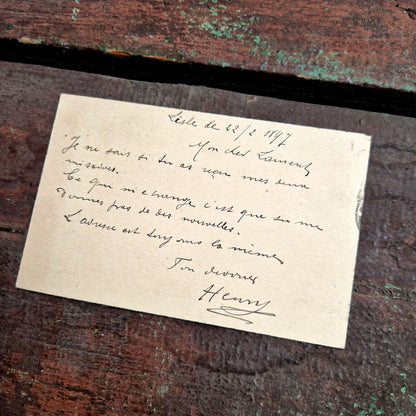 Lisle le 22/2 1897
Mon cher Laurent
Je ne sais si tu as reçu mes deux
missives.
Ce qui m'étrange c'est que tu me
donnes pas de des nouvelles.
L'adresse est toujours la même
Ton dévoué
Henry